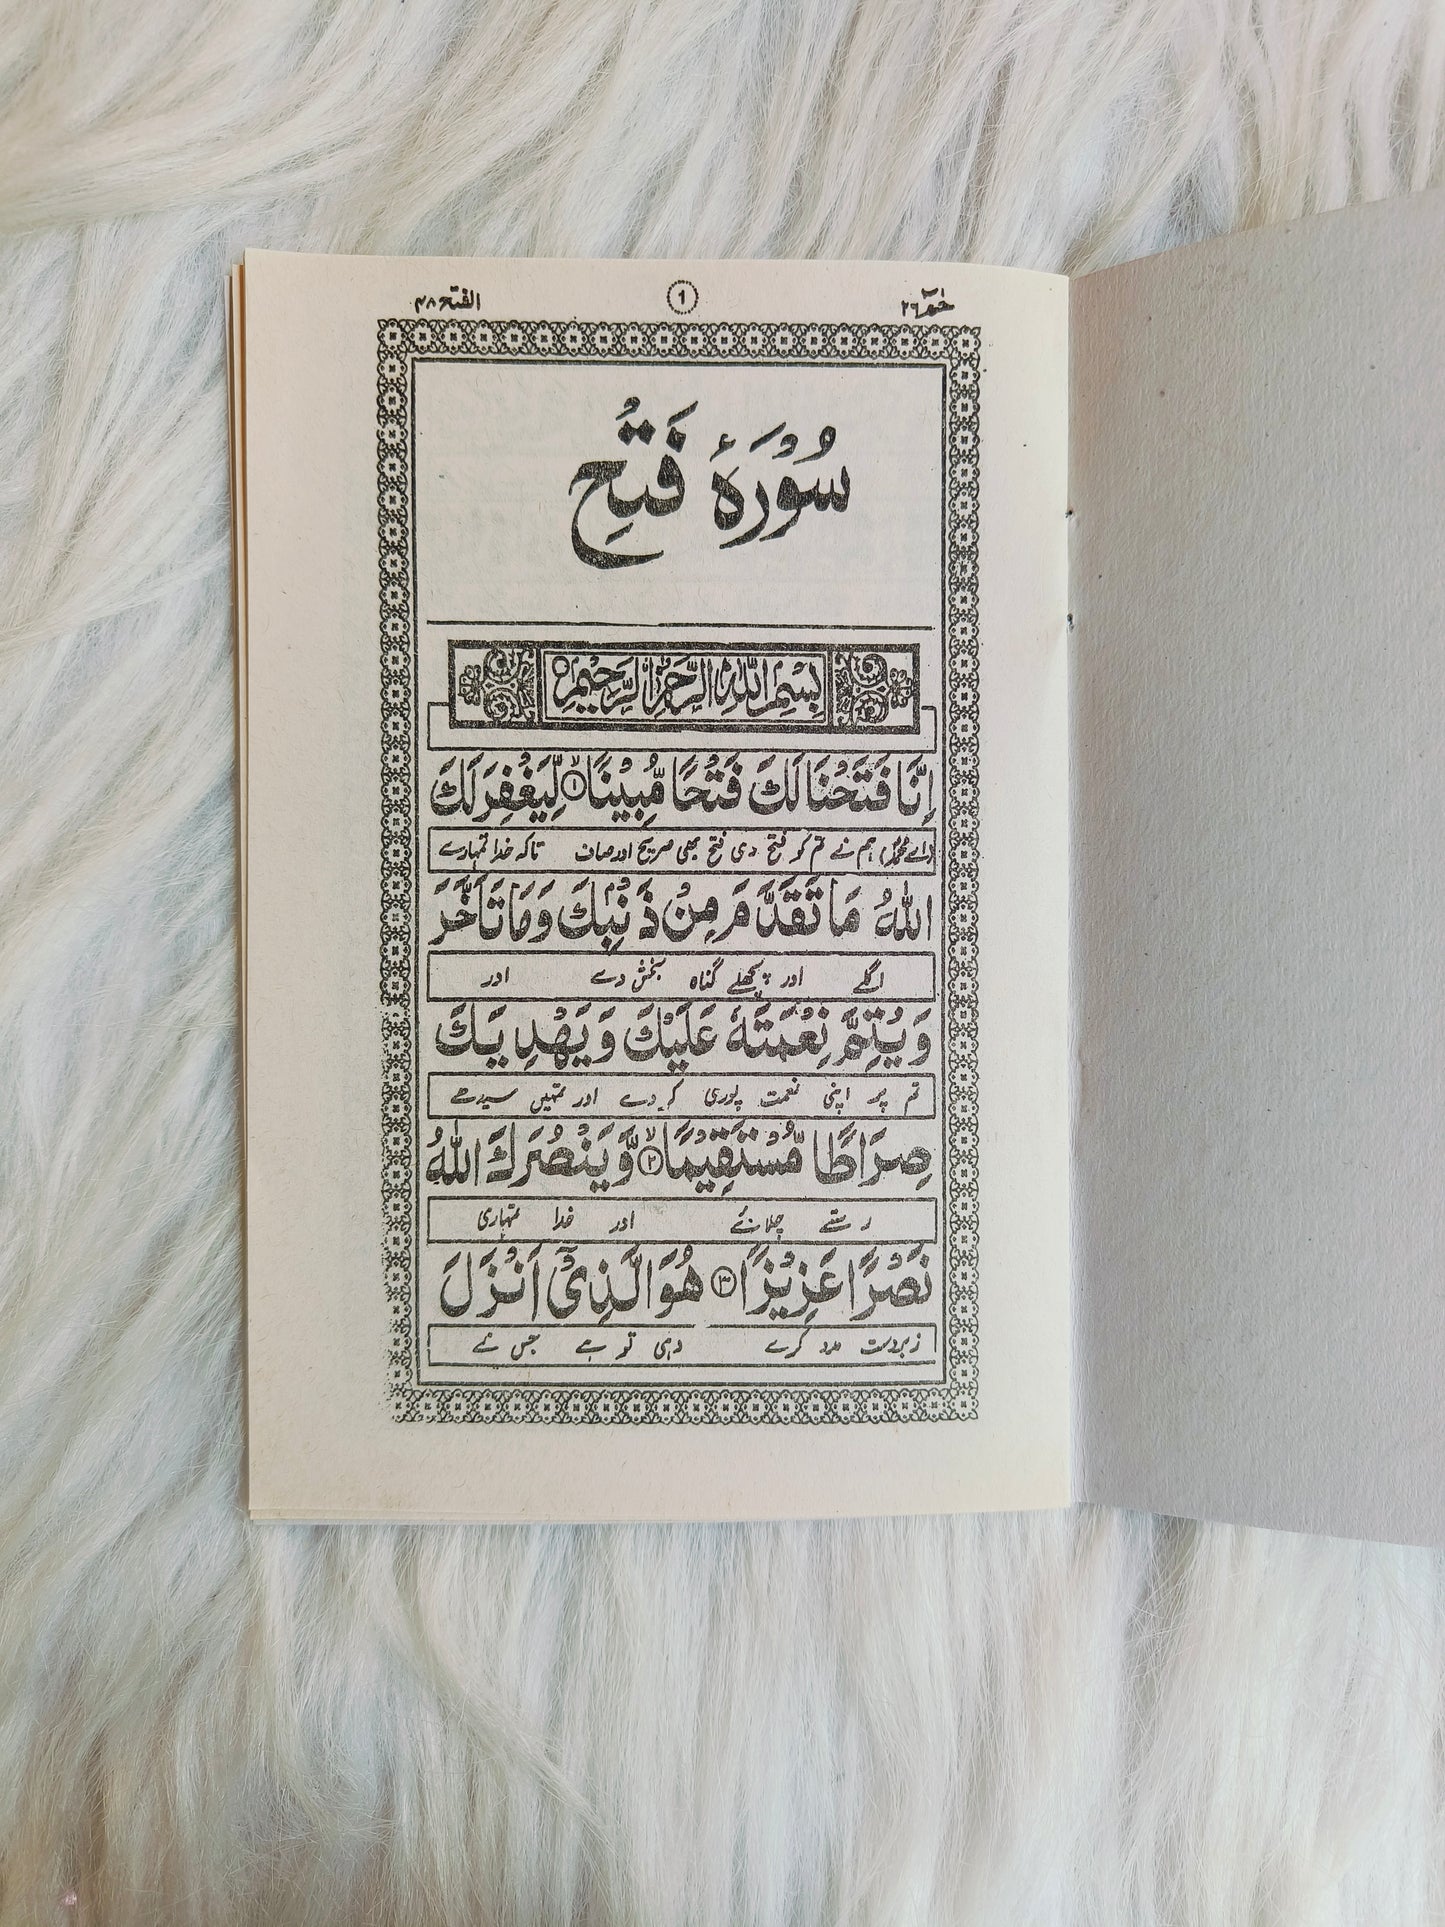 حٰمٓ ٢٦ ١ الفتح ٤٨
سُوْرَۂ فَتْحِ
بِسْمِ اللّٰهِ الرَّحْمٰنِ الرَّحِيْمِ
اِنَّا فَتَحْنَا لَكَ فَتْحًا مُّبِيْنًا ۙ‏﴿۱﴾ لِّيَغْفِرَ لَكَ
(اے محمدؐ) ہم نے تم کو فتح دی فتح بھی صریح اور صاف تاکہ خدا تمہارے
اللّٰهُ مَا تَقَدَّمَ مِنْ ذَنْۢبِكَ وَمَا تَاَخَّرَ
اگلے اور پچھلے گناہ بخش دے اور
وَيُتِمَّ نِعْمَتَهٗ عَلَيْكَ وَيَهْدِيَكَ
تم پر اپنی نعمت پوری کر دے اور تمہیں سیدھے
صِرَاطًا مُّسْتَقِيْمًا ۙ‏﴿۲﴾ وَّيَنْصُرَكَ اللّٰهُ
رستے چلائے اور خدا تمہاری
نَصْرًا عَزِيْزًا ﴿۳﴾ هُوَ الَّذِيْۤ اَنْزَلَ
زبردست مدد کرے وہی تو ہے جس نے